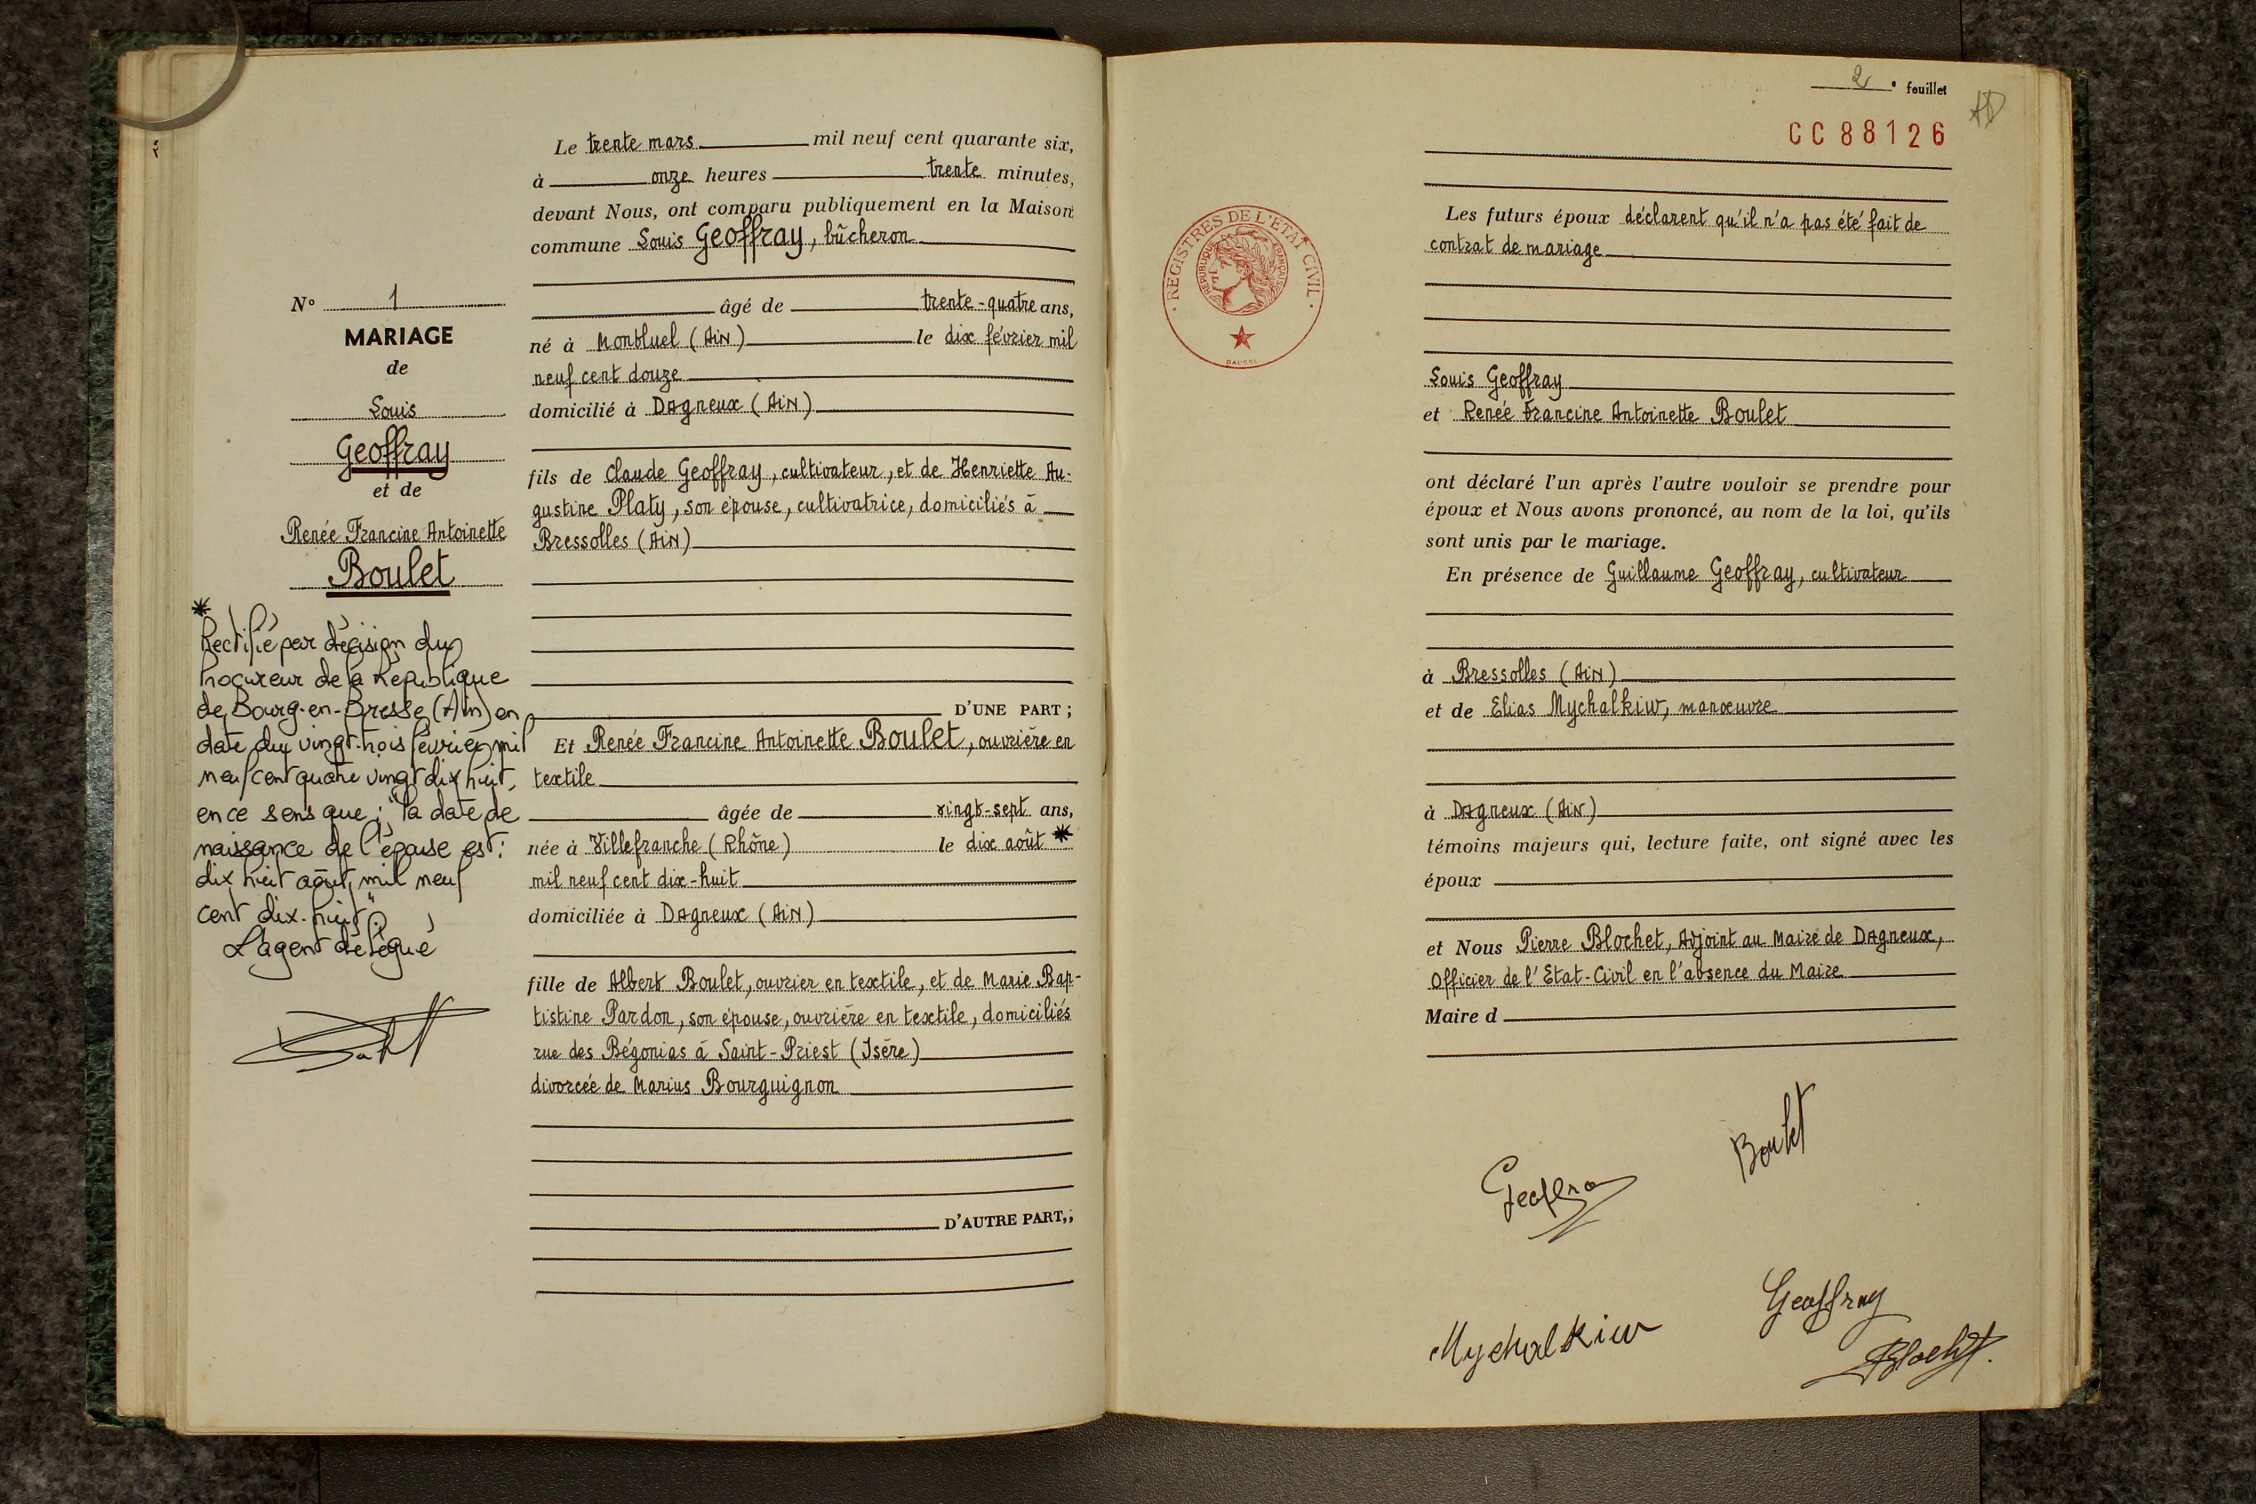 N° 1
MARIAGE
de
Louis
Geoffray
et de
Renée Francine Antoinette
Boulet
*
Rectifié par décision du
Procureur de la République
de Bourg-en-Bresse (Ain) en
date du vingt-trois février mil
neuf cent quatre vingt dix huit,
en ce sens que : "la date de
naissance de l'épouse est :
dix huit août mil neuf
cent dix-huit".
L'agent délégué
Le trente mars mil neuf cent quarante six,
à onze heures trente minutes,
devant Nous, ont comparu publiquement en la Maison
commune Louis Geoffray, bûcheron
âgé de trente-quatre ans,
né à Montluel (Ain) le dix février mil
neuf cent douze
domicilié à Dagneux (Ain)
fils de Claude Geoffray, cultivateur, et de Henriette Au-
gustine Platy, son épouse, cultivatrice, domiciliés à
Bressolles (Ain)
D'UNE PART ;
Et Renée Francine Antoinette Boulet, ouvrière en
textile
âgée de vingt-sept ans,
née à Villefranche (Rhône) le dix août *
mil neuf cent dix-huit
domiciliée à Dagneux (Ain)
fille de Albert Boulet, ouvrier en textile, et de Marie Bap-
tistine Pardon, son épouse, ouvrière en textile, domiciliés
rue des Bégonias à Saint-Priest (Isère)
divorcée de Marius Bourguignon
D'AUTRE PART,;
2 e feuillet
CC88126
REGISTRES DE L'ETAT CIVIL
REPUBLIQUE FRANÇAISE
Les futurs époux déclarent qu'il n'a pas été fait de
contrat de mariage
Louis Geoffray
et Renée Francine Antoinette Boulet
ont déclaré l'un après l'autre vouloir se prendre pour
époux et Nous avons prononcé, au nom de la loi, qu'ils
sont unis par le mariage.
En présence de Guillaume Geoffray, cultivateur
à Bressolles (Ain)
et de Elias Mychalkiw, manœuvre
à Dagneux (Ain)
témoins majeurs qui, lecture faite, ont signé avec les
époux
et Nous Pierre Blochet, Adjoint au Maire de Dagneux,
Officier de l'Etat-Civil en l'absence du Maire
Maire d
Boulet
Geoffra
Geoffray
Mychalkiw
Blochet